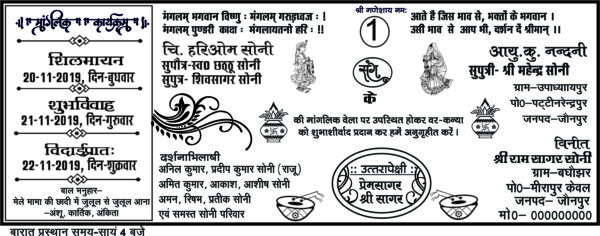 मांगलिक कार्यक्रम
शिलमायन
20-11-2019, दिन-बुधवार
शुभविवाह
21-11-2019, दिन-गुरुवार
विदाईप्रातः
22-11-2019, दिन-शुक्रवार
बाल मनुहार-
मेले मामा की छादी में जुलूल से जुलूल आना
-अंशू, कार्तिक, अंकिता
बारात प्रस्थान समय-सायं 4 बजे
मंगलम् भगवान विष्णु : मंगलम् गरुड़ध्वज : !
मंगलम् पुण्डरी काक्ष : मंगलायतनो हरि : !!
श्री गणेशाय नमः
1
आते है जिस भाव से, भक्तों के भगवान ।
उसी भाव से आप भी, दर्शन दें श्रीमान् ।।
चि. हरिओम सोनी
सुपौत्र-स्व0 छठ्ठू सोनी
सुपुत्र- शिवसागर सोनी
संग
आयु.कु. नन्दनी
सुपुत्री- श्री महेन्द्र सोनी
ग्राम-उपाध्यायपुर
पो०-पट्टीनरेन्द्रपुर
जनपद-जौनपुर
के
की मांगलिक वेला पर उपस्थित होकर वर-कन्या
को शुभाशीर्वाद प्रदान कर हमें अनुगृहीत करें ।
दर्शनाभिलाषी
अनिल कुमार, प्रदीप कुमार सोनी (राजू)
अमित कुमार, आकाश, आशीष सोनी
अमन, रिषम, प्रतीक सोनी
एवं समस्त सोनी परिवार
उत्तरापेक्षी
प्रेमसागर
श्री सागर
विनीत
श्री राम सागर सोनी
ग्राम-बघौझर
पो०-मीरापुर केवल
जनपद- जौनपुर
मो०- 000000000